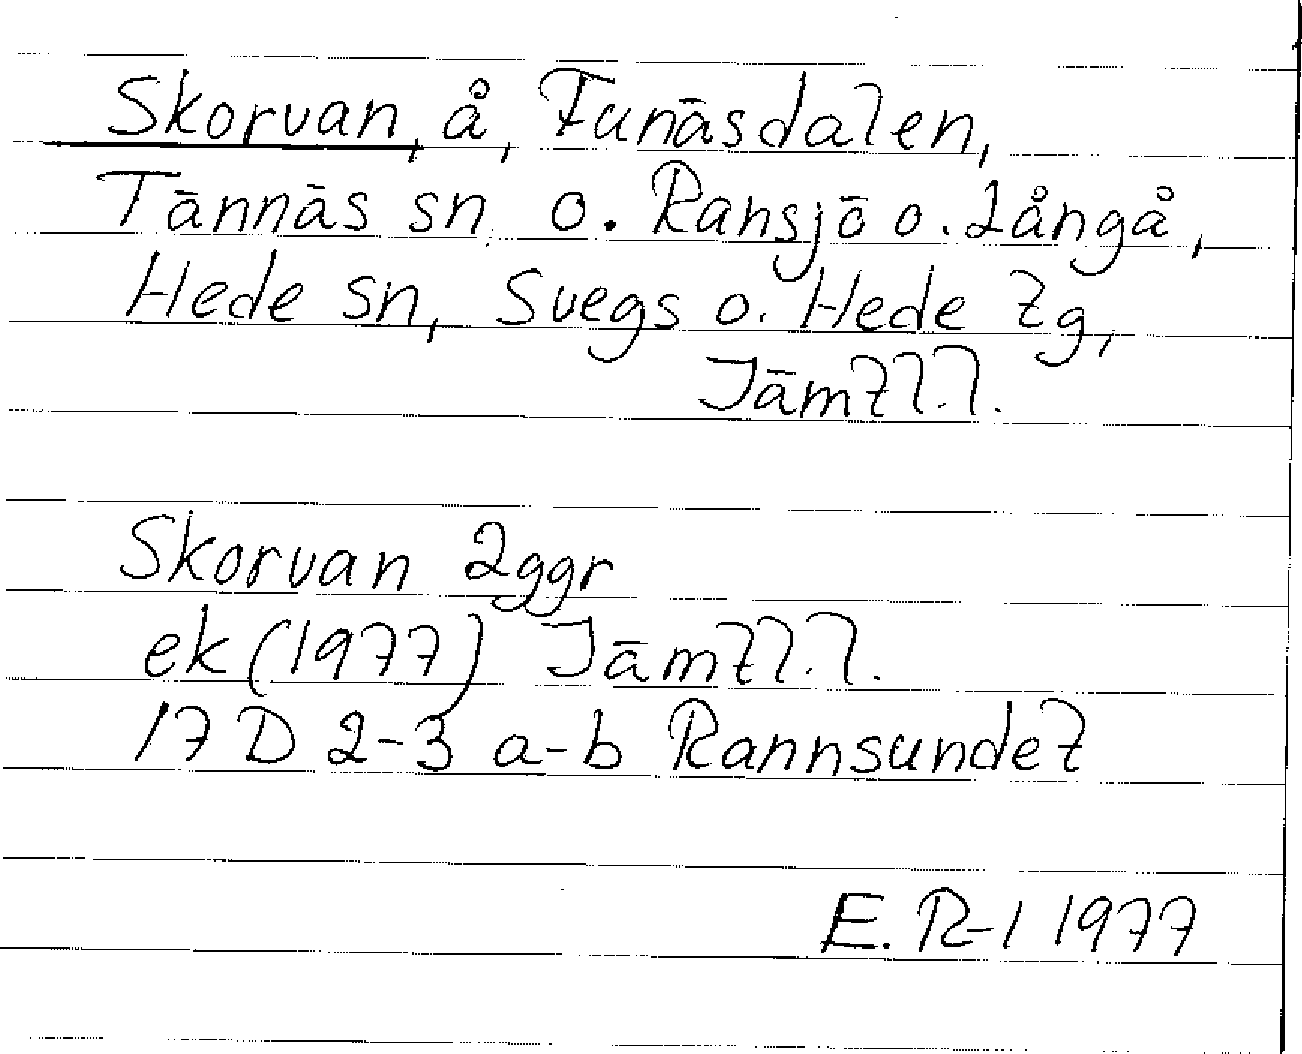 Skorvan, å, Funäsdalen,
Tännäs sn o. Ransjö o. Långå,
Hede sn, Svegs o. Hede tg,
Jämtl.l.
Skorvan 2ggr
ek (1977) Jämtl.l.
17 D 2-3 a-b Rannsundet
E. R-l 1977